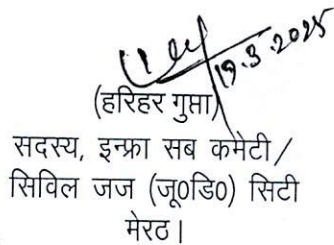 19.3.2025
(हरिहर गुप्ता)
सदस्य, इन्फ्रा सब कमेटी/
सिविल जज (जू0डि0) सिटी
मेरठ।